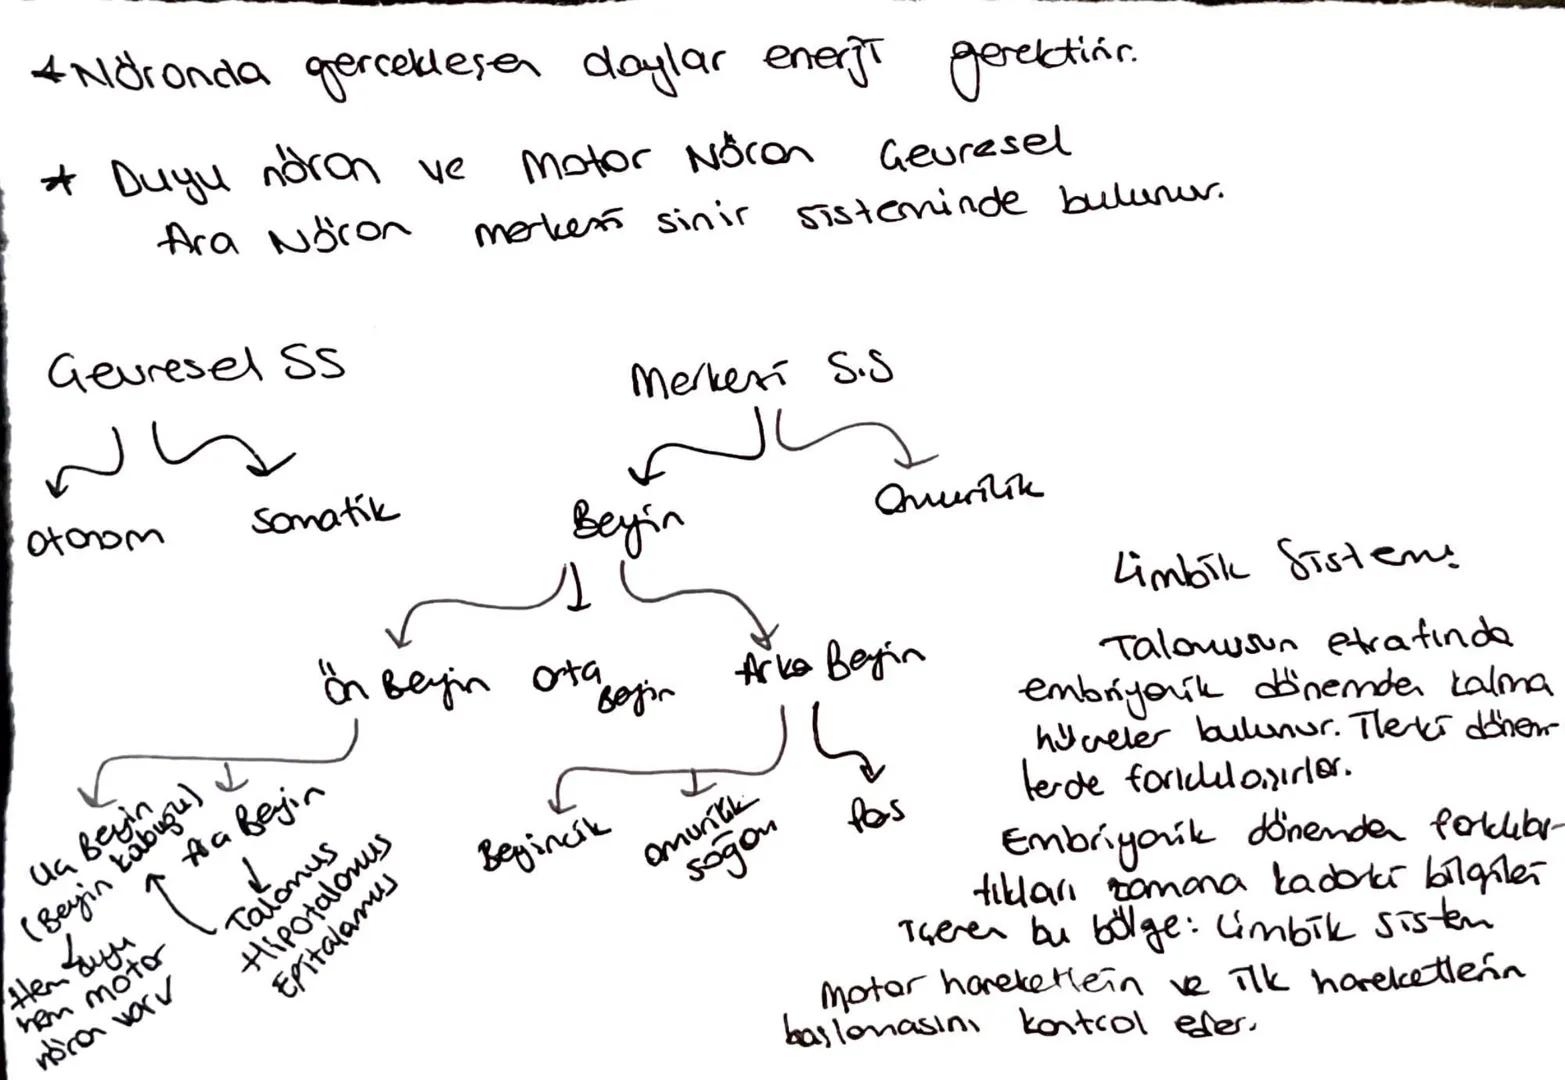 * Nöronda gerçekleşen olaylar enerji gerektirir.
* Duyu nöron ve Motor Nöron Çevresel
Ara Nöron merkezi sinir sisteminde bulunur.
Çevresel SS
Merkezi S.S
otonom
Somatik
Beyin
Omurilik
Ön Beyin
Orta Beyin
Arka Beyin
Uç Beyin
(Beyin kabuğu)
Hem duyu
hem motor
nöron var
Ara Beyin
Talamus
Hipotalamus
Epitalamus
Beyincik
omurilik
soğan
Pos
Limbik Sistem:
Talamusun etrafında
embriyonik dönemden kalma
hücreler bulunur. İlerki dönem-
lerde farklılaşırlar.
Embriyonik dönemden farklılaş-
tıkları zamana kadarki bilgileri
içeren bu bölge: Limbik sistem
Motor hareketlerin ve ilk hareketlerin
başlamasını kontrol eder.